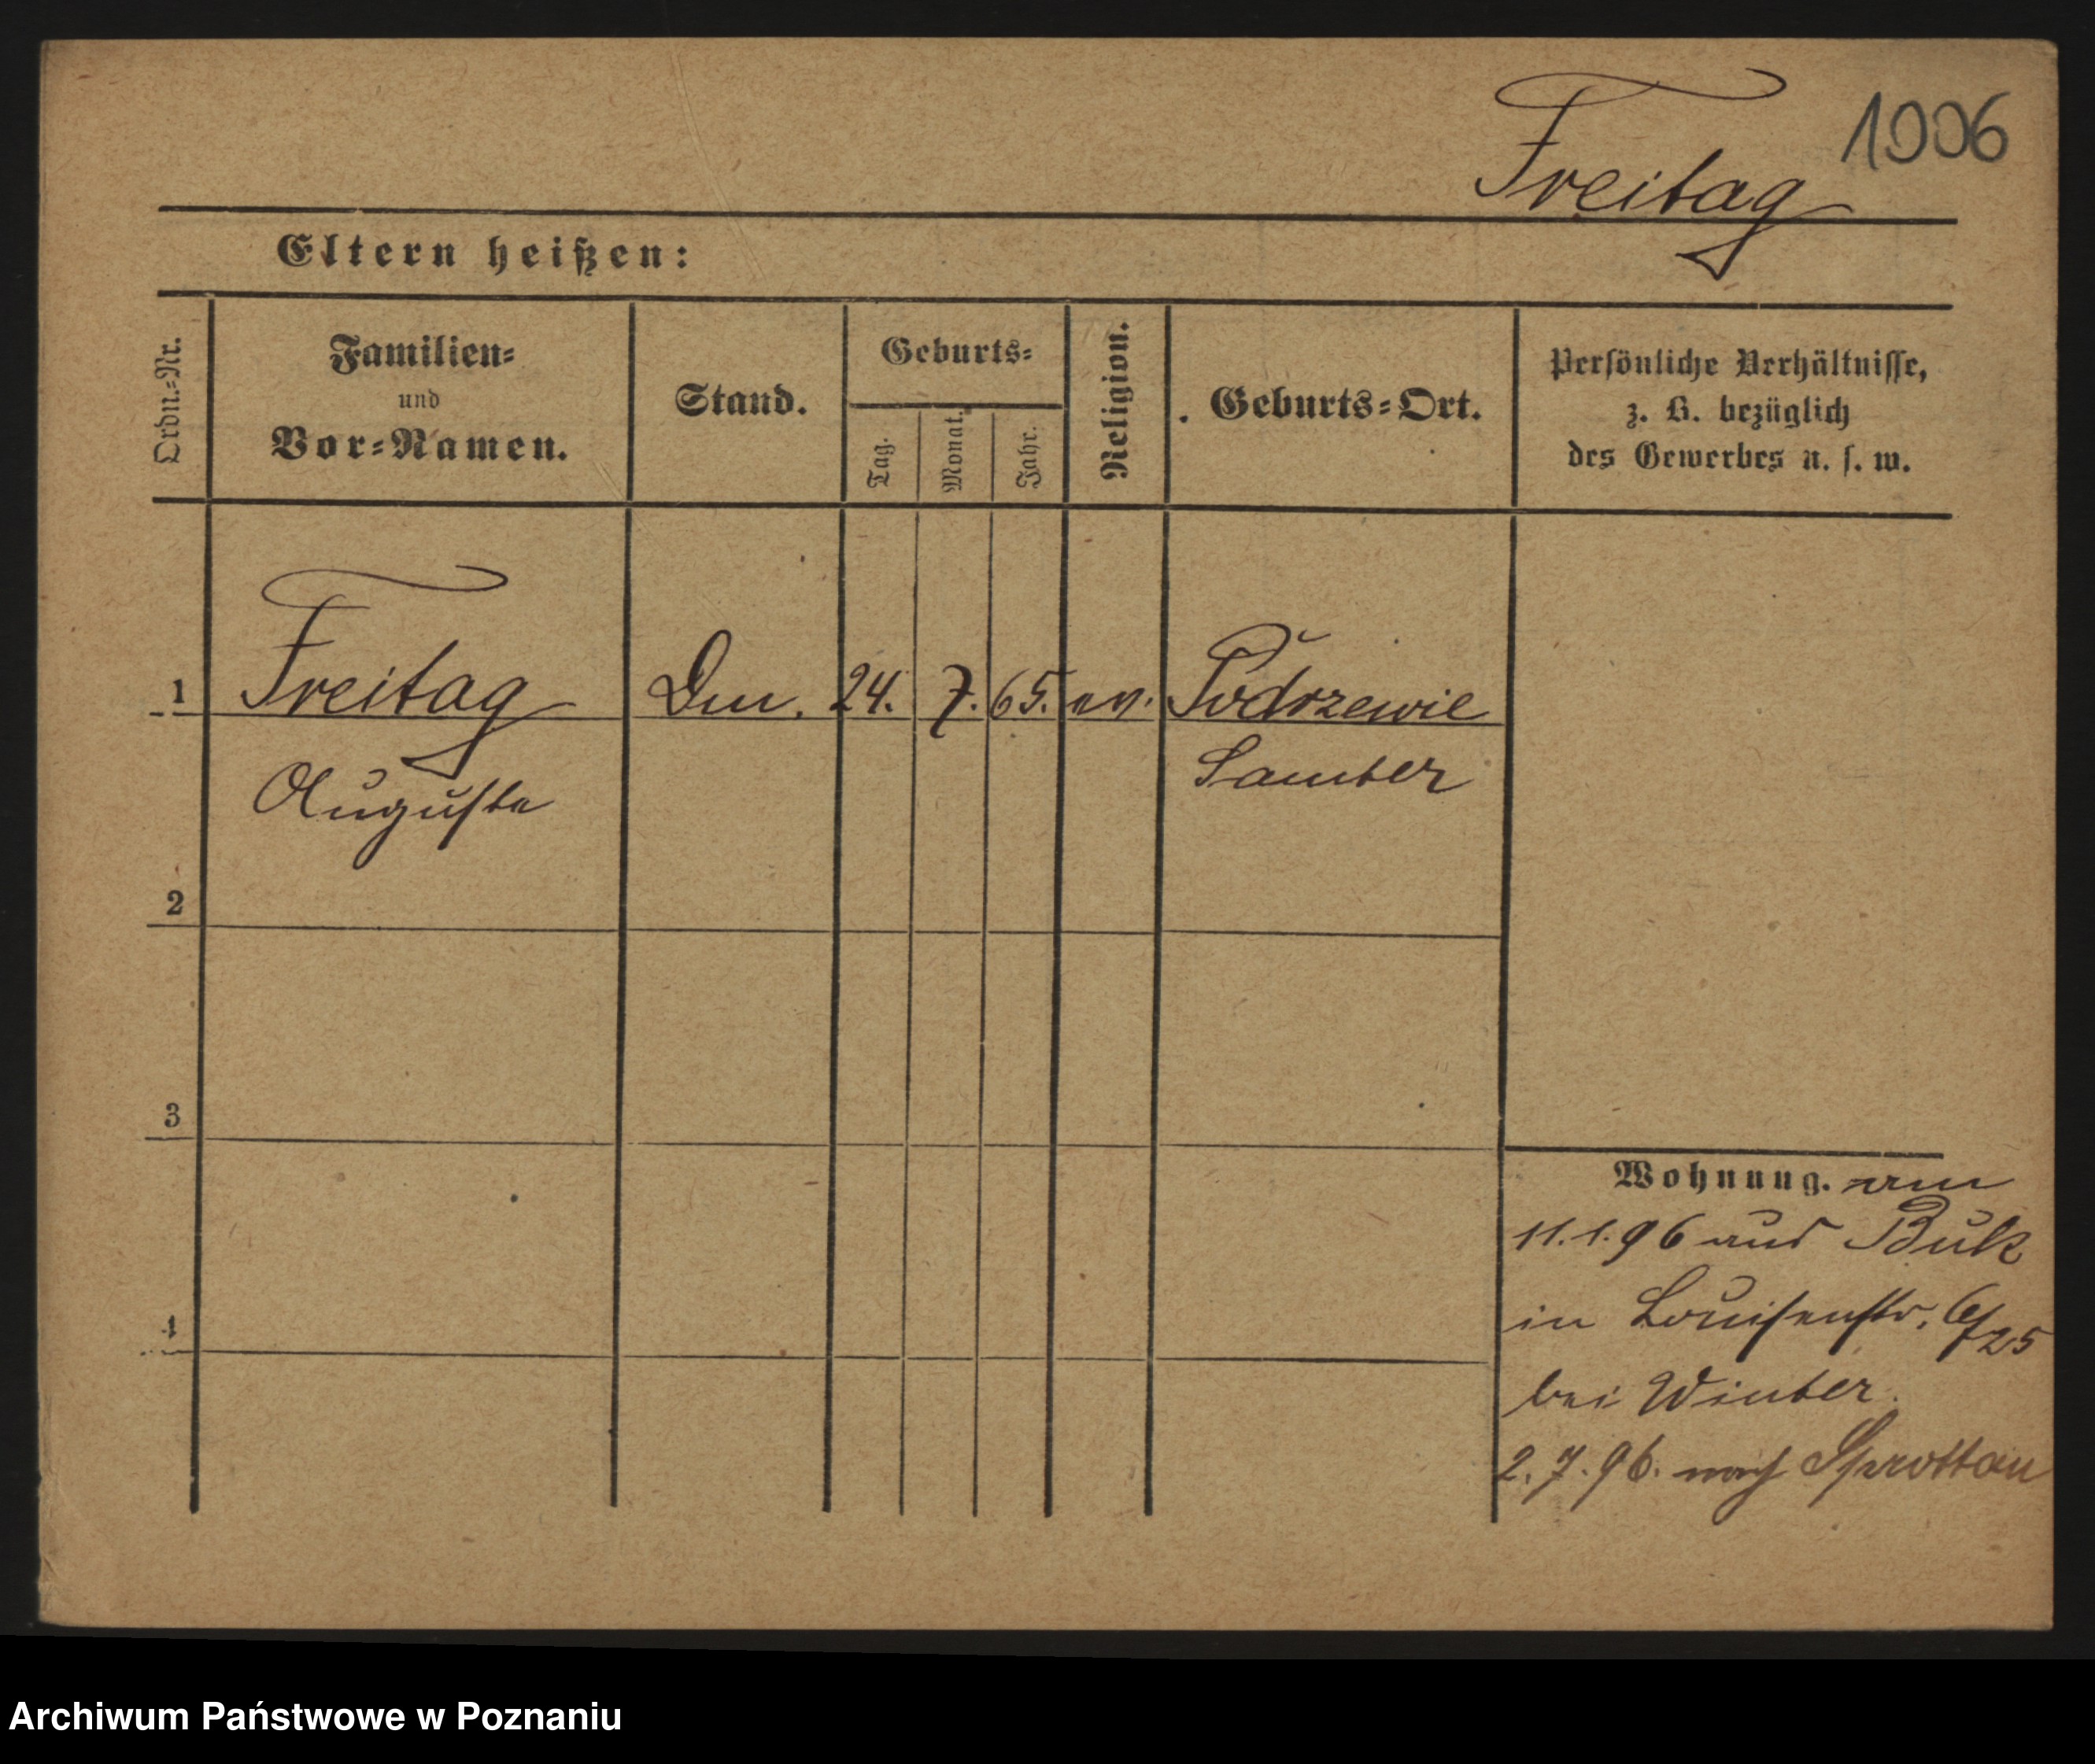 1006
Freitag
Eltern heißen:
Ordn.=Nr.
Familien=
und
Vor=Namen.
Stand.
Geburts=
Tag.
Monat.
Jahr.
Religion.
Geburts=Ort.
Persönliche Verhältnisse,
z. B. bezüglich
des Gewerbes u. s. w.
1 Freitag 24. 7. 65. ev. Podrzewie
Auguste Samter
2
3
4
Wohnung. am
11.1.96 aus Buk
in Louisenstr. 6/25
bei Winter.
2.7.96. nach Sprottau
Archiwum Państwowe w Poznaniu